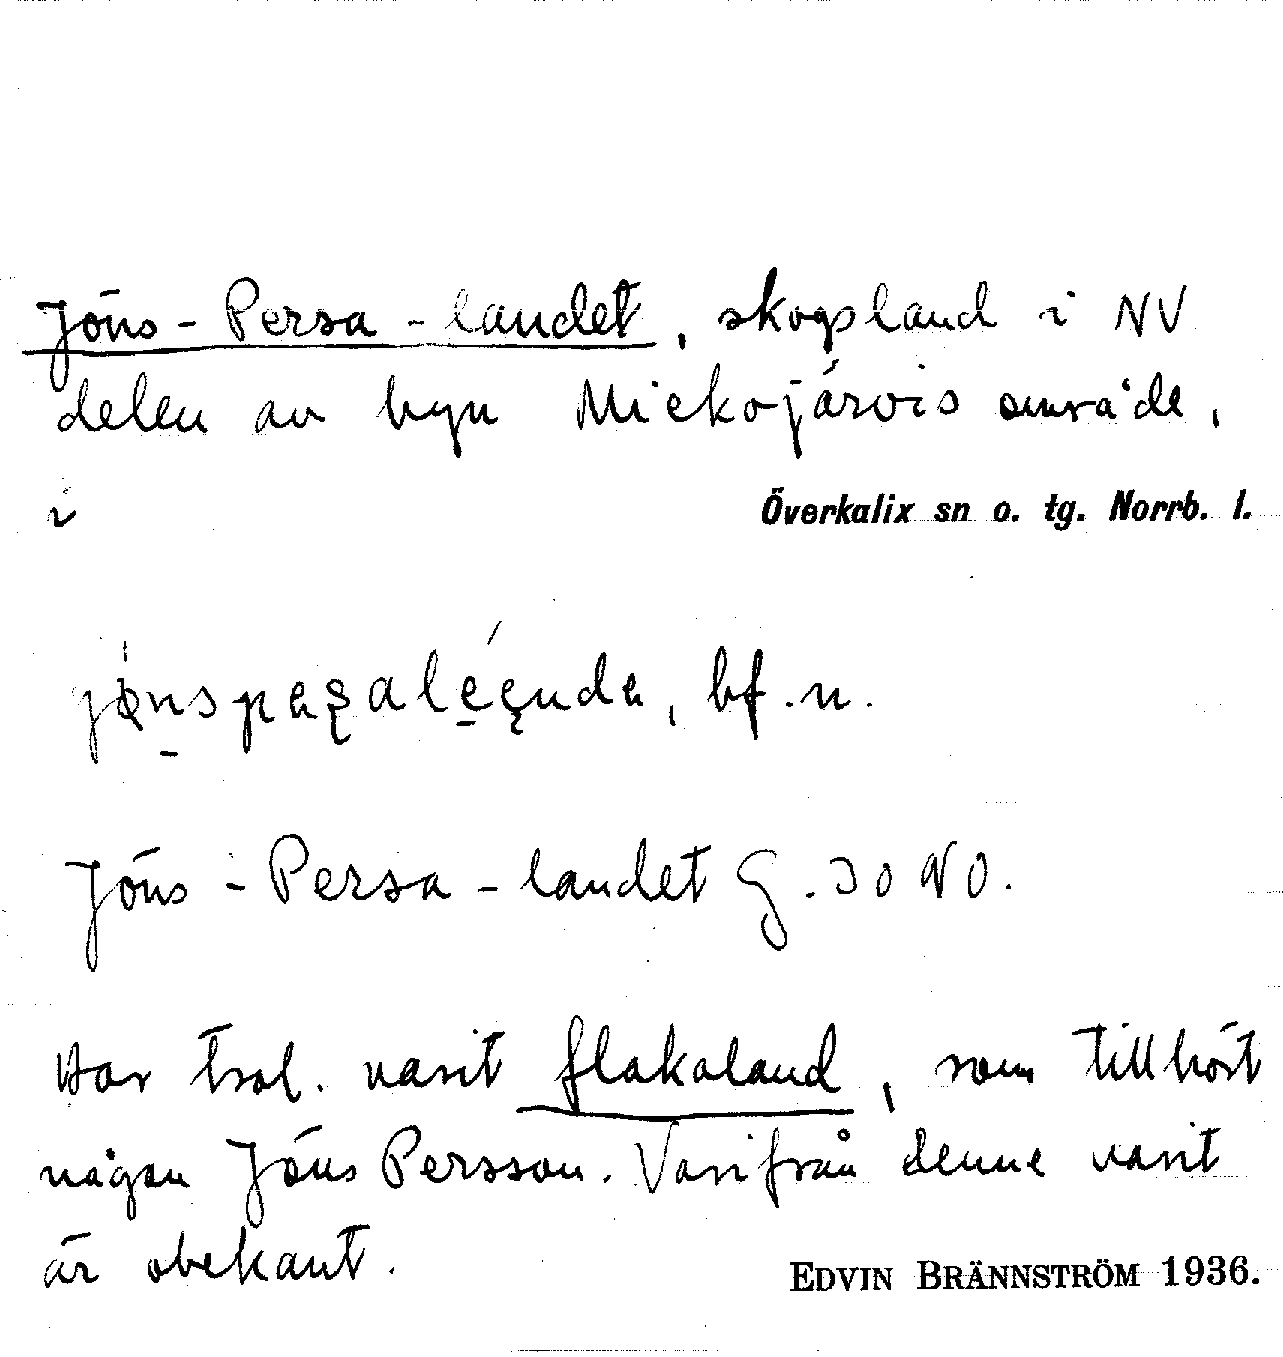 Jöns-Persa-landet, skogsland i NV
delen av byn Miekojärvis område,
i Överkalix sn o. tg. Norrb. l.
bf.n.
Jöns-Persa-landet G. 30 NO.
Har trol. varit flakaland, som tillhört
någon Jöns Persson. Varifrån denne varit
är obekant.
EDVIN BRÄNNSTRÖM 1936.